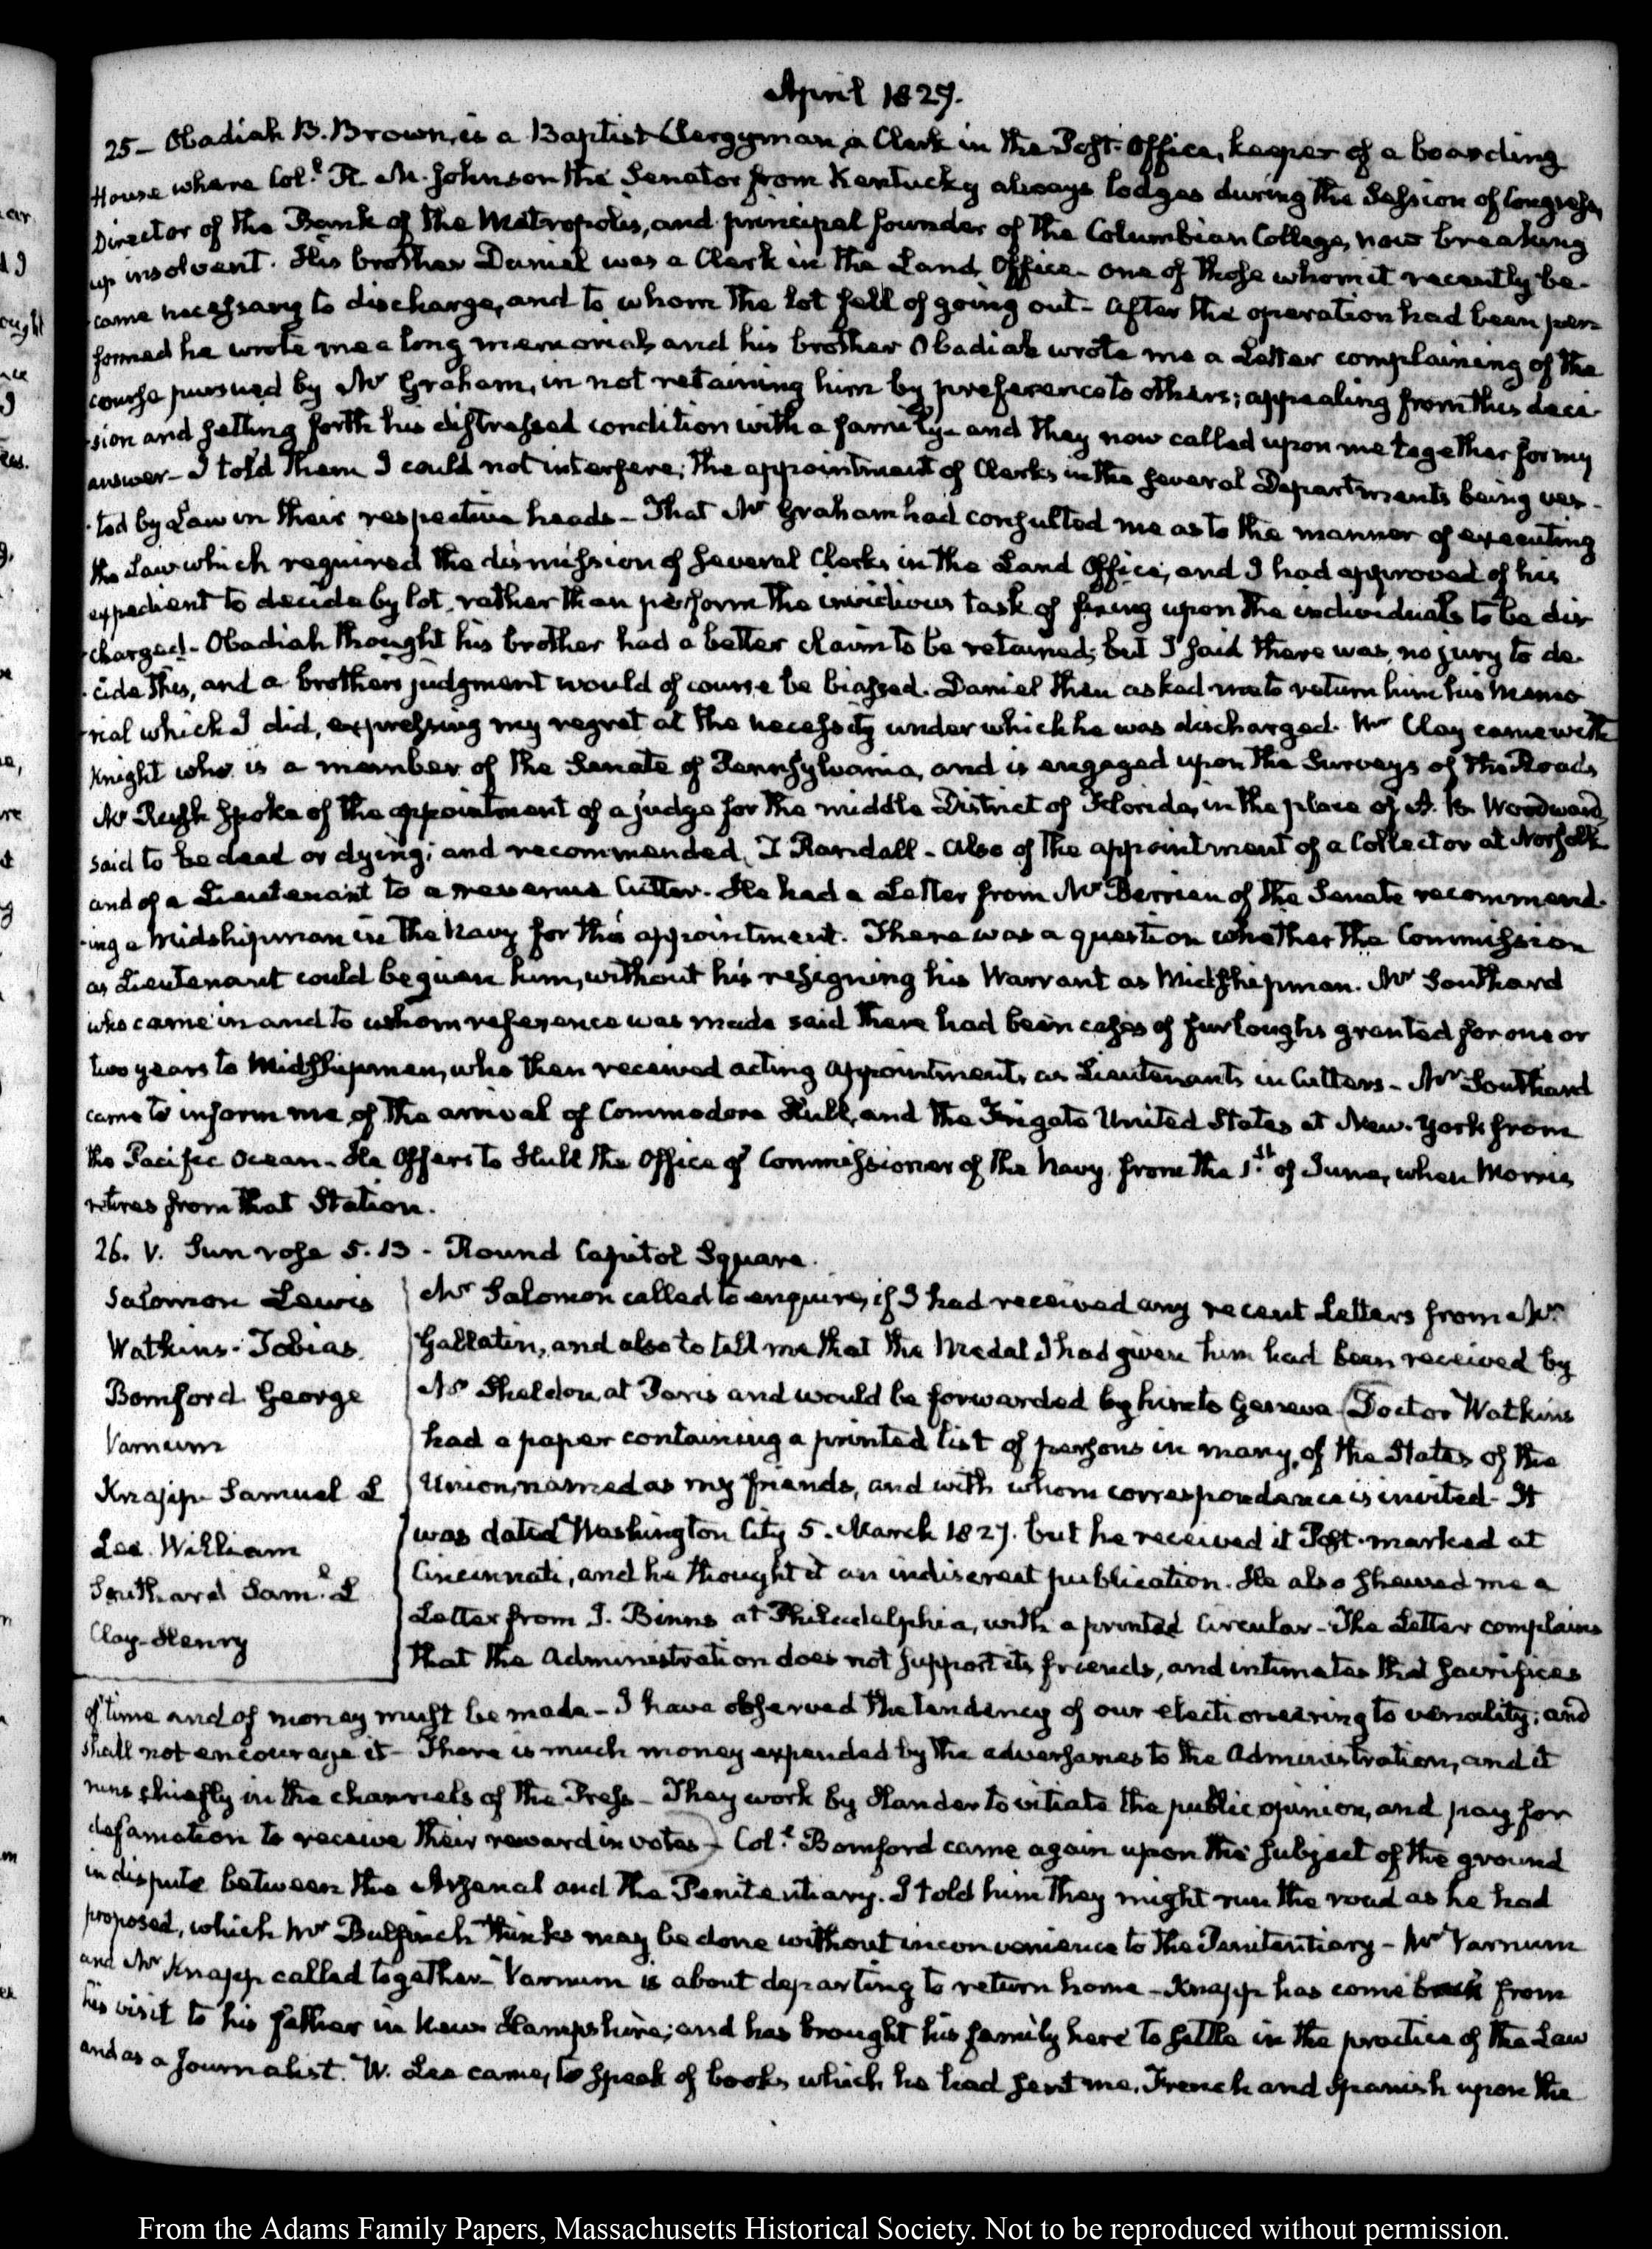 April 1827.
25 – Obadiah B. Brown, is a Baptist Clergyman, a Clerk in the Post-Office, keeper of a boarding
House where Col.l R. M. Johnson the Senator from Kentucky always lodges during the Session of Congress,
Director of the Bank of the Metropolis, and principal founder of the Columbian College, now breaking
up insolvent. His brother Daniel was a Clerk in the Land Office – one of those whom it recently be-
-came necessary to discharge, and to whom the lot fell of going out – After the operation had been per-
formed he wrote me a long memorial, and his brother Obadiah wrote me a Letter complaining of the
course pursued by Mr Graham, in not retaining him by preference to others; appealing from this deci-
-sion and setting forth his distressed condition with a family – and they now called upon me together for my
answer – I told them I could not interfere; the appointment of Clerks in the several Departments being ves-
-ted by Law in their respective heads – That Mr Graham had consulted me as to the manner of executing
the Law which required the dismission of several Clerks in the Land Office, and I had approved of his
expedient to decide by lot, rather than perform the invidious task of fixing upon the individuals to be dis-
-charged – Obadiah thought his brother had a better claim to be retained; but I said there was, no jury to de-
-cide this, and a brothers judgment would of course be biassed. Daniel then asked me to return him his memo-
-rial which I did, expressing my regret at the necessity under which he was discharged. Mr Clay came with
Knight who is a member of the Senate of Pennsylvania, and is engaged upon the Surveys of the Roads
Mr Rush spoke of the appointment of a judge for the middle District of Florida, in the place of A. B. Woodward,
said to be dead or dying; and recommended, T Randall – Also of the appointment of a Collector at Norfolk
and of a Lieutenant to a revenue Cutter. He had a Letter from Mr Berrien of the Senate recommend-
-ing a Midshipman in the Navy for this appointment. There was a question whether the Commission
as Lieutenant could be given him, without his resigning his Warrant as Midshipman. Mr Southard
who came in and to whom reference was made said there had been cases of furloughs granted for one or
two years to Midshipmen, who then received acting appointments as Lieutenants in Cutters – Mr Southard
came to inform me of the arrival of Commodore Hull, and the Frigate United States at New-York from
the Pacific Ocean – He offers to Hull the Office of Commissioner of the Navy, from the 1.st of June, when Morris
retires from that Station.
26. V. Sun rose 5.13 – Round Capitol Square.
Salomon Lewis
Watkins – Tobias
Bomford George
Varnum
Knapp Samuel L
Lee. William
Southard Sam.l L
Clay – Henry
Mr Salomon called to enquire, if I had received any recent Letters from Mr
Gallatin, and also to tell me that the Medal I had given him had been received by
Mr Sheldon, at Paris and would be forwarded by him to Geneva (Doctor Watkins
had a paper containing a printed list of persons in many, of the States of the
Union, named as my friends, and with whom correspondence is invited – It
was dated Washington City 5. March 1827. but he received it Post-marked at
Cincinnati, and he thought it an indiscreet publication. He also shewed me a
Letter from J. Binns at Philadelphia, with a printed Circular – The Letter complains
that the Administration does not support its friends, and intimates that sacrifices
of time and of money must be made – I have observed the tendency of our electioneering to venality; and
shall not encourage it – There is much money expended by the adversaries to the Administration, and it
runs chiefly in the channels of the Press – They work by slander to vitiate the public opinion, and pay for
defamation to receive their reward in votes –) Col.l Bomford came again upon the subject of the ground
in dispute between the Arsenal and the Penitentiary. I told him they might run the road as he had
proposed, which Mr Bulfinch thinks may be done without inconvenience to the Penitentiary – Mr Varnum
and Mr Knapp called together – Varnum is about departing to return home – Knapp has come back from
his visit to his father in New-Hampshire; and has brought his family here to settle in the practice of the Law
and as a Journalist. W. Lee came, to speak of books which he had sent me, French and Spanish upon the
From the Adams Family Papers, Massachusetts Historical Society. Not to be reproduced without permission.